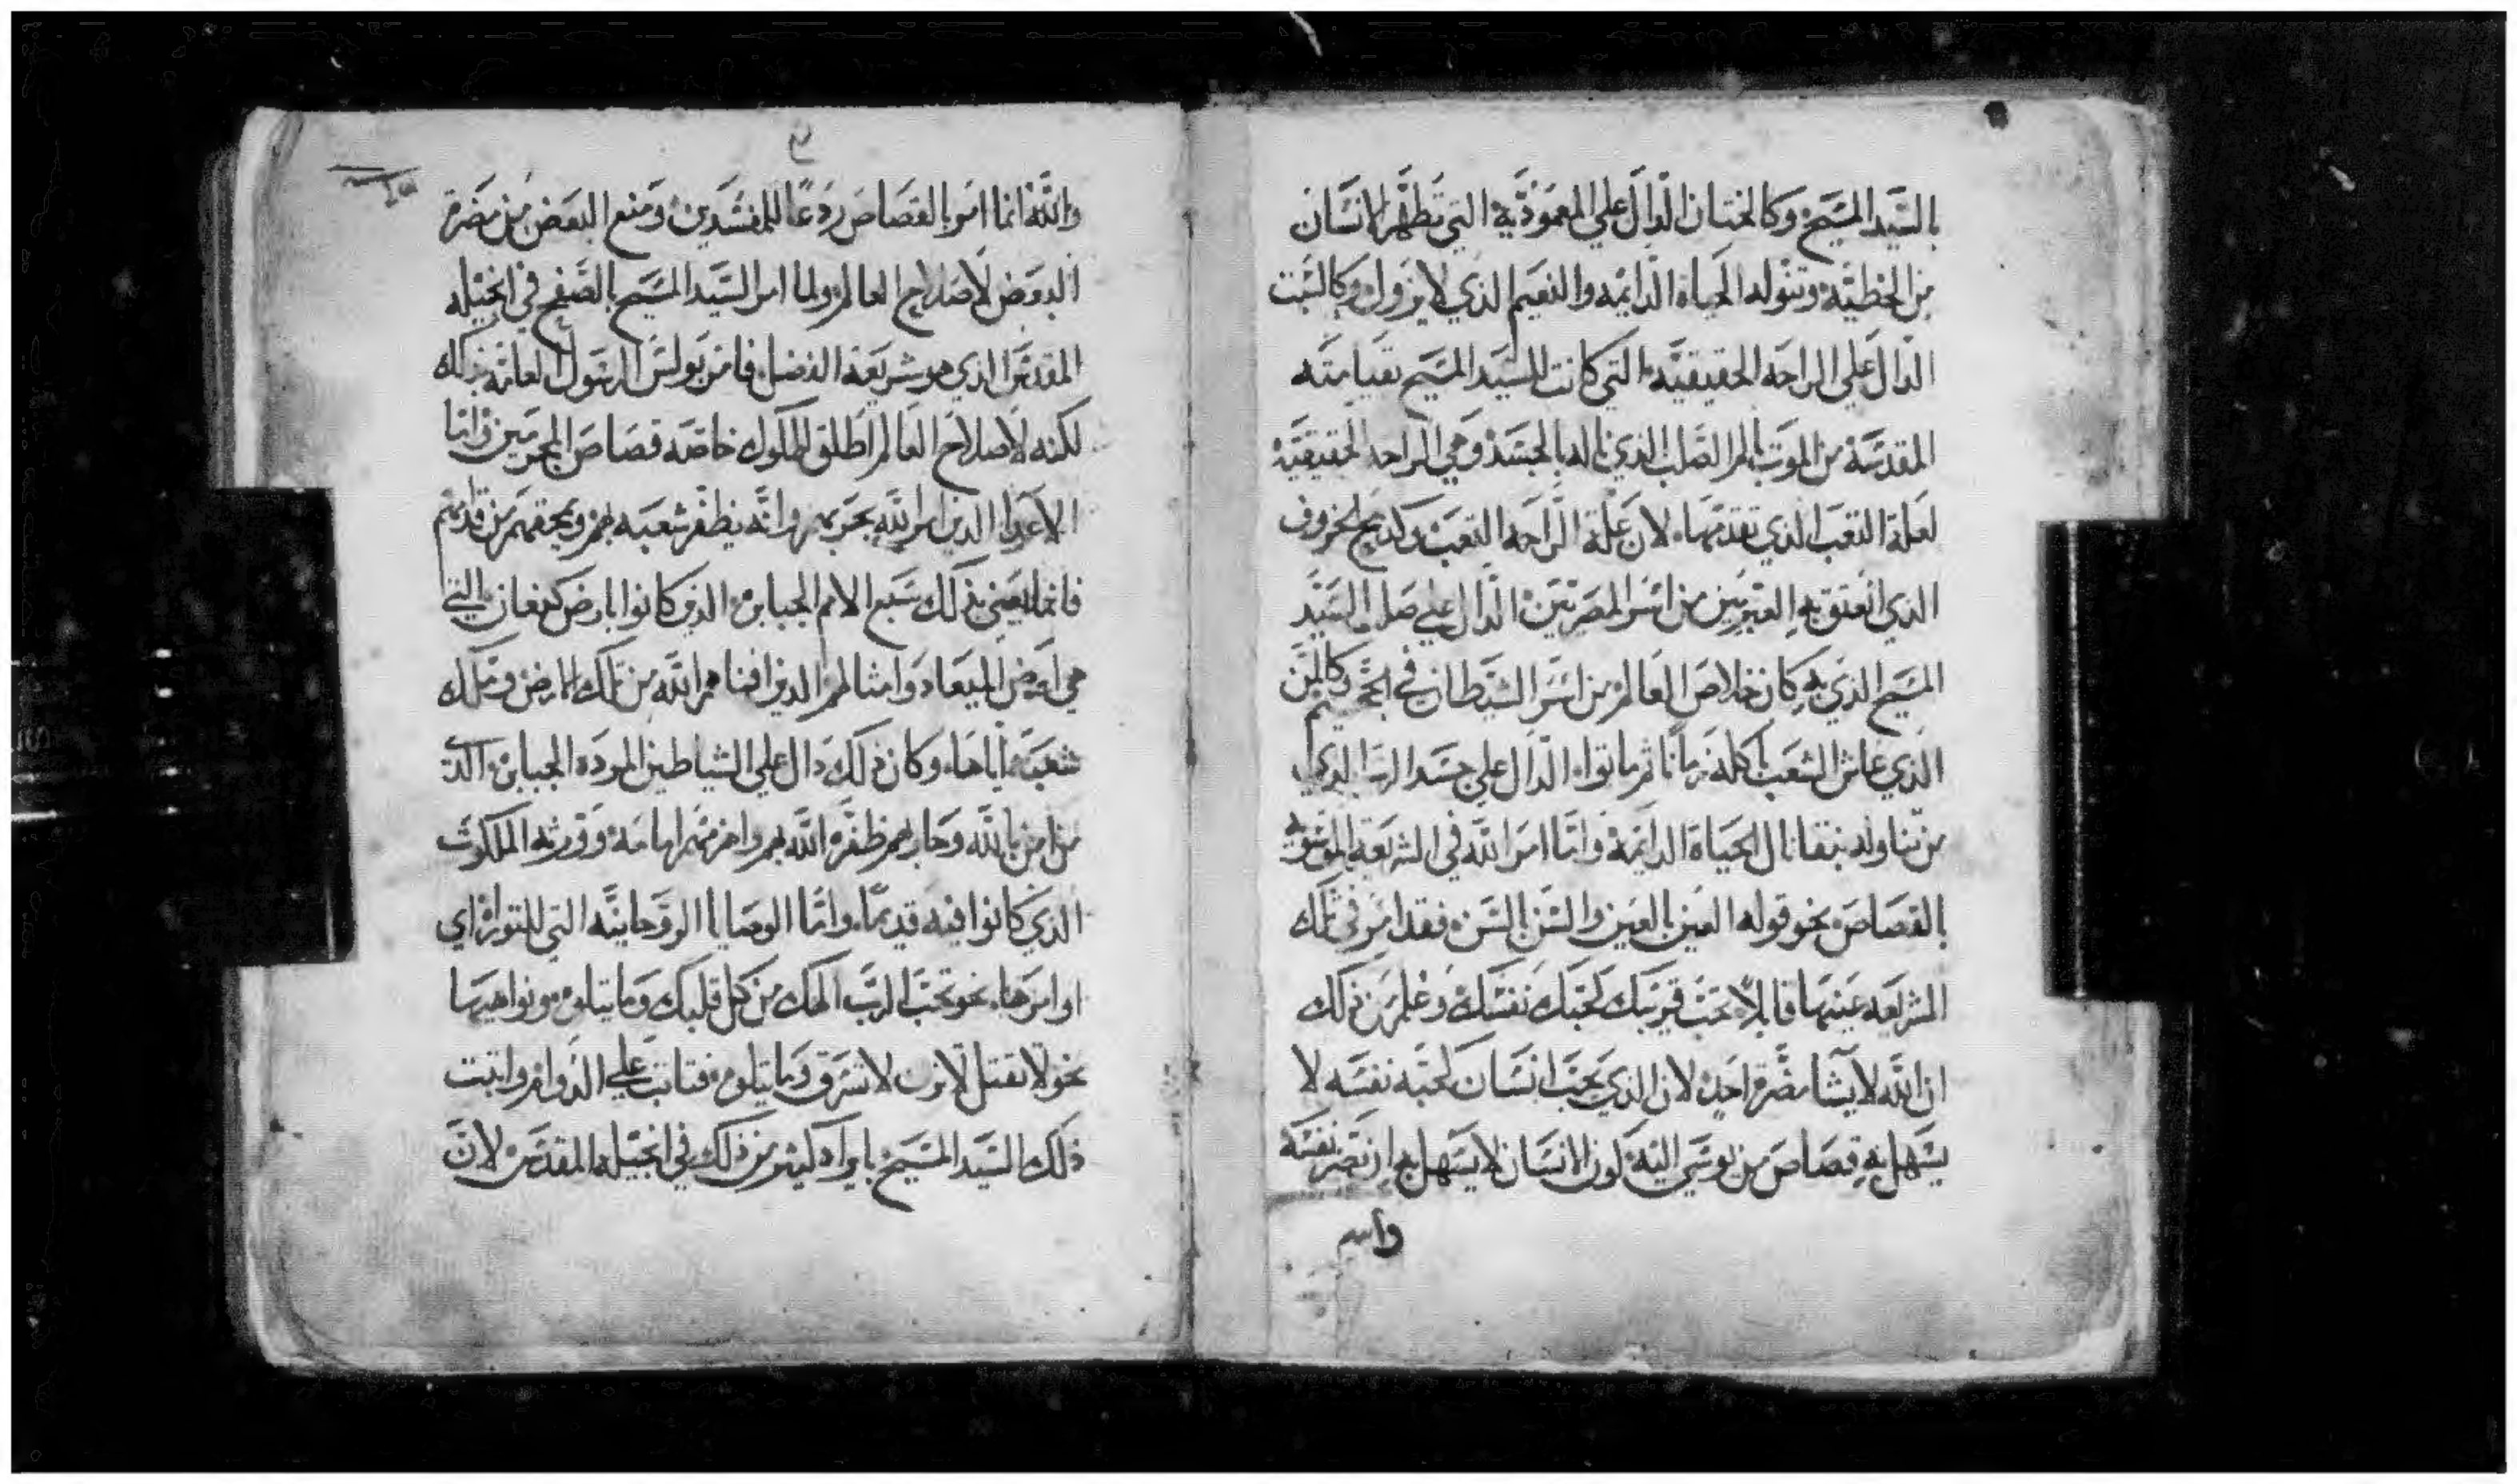 بالسيد المسيح وكالختان الدال علي المعموذية التي تطهر الانسان
من الخطية وتنوله الحياة الدايمه والنعيم الذي لا يزول وكالسبت
الدال علي الراحه الحقيقيه التي كانت للسيد المسيح بقيامته
المقدسه من الموت بالم الصلب الذي ناله بالجسد وهي الراحه الحقيقية
لعلة التعب الذي تقدمها لان علة الراحه التعب وكدبح الخروف
الذي انعتق به العبريين من اسر المصريين الدال علي صلب السيد
المسيح الذي به كان خلاص العالم من اسر الشيطان في الجحيم وكالمن
الذي عاش الشعب باكله زمانا ثم ماتوا الدال علي جسد الرب الذي
من تناوله بنقا نال الحياة الدايمة واما امر الله في الشريعه الموسويه
بالقصاص نحو قوله العين بالعين والسن بالسن فقد امر في تلك
الشريعه عينها قايلا تحب قريبك كحبك نفسك وعلم من ذلك
ان الله لا يشا مضرة احد لان الذي يحب انسان كحبه نفسه لا
يسهل به قصاص من يوسي اليه كون الانسان لا يسهل به ان تضر نفسه
والله
والله انما امر بالقصاص ردعا للمفسدين ومنع البعض من مضرة
البعض لاصلاح العالم ولما امر السيد المسيح بالصفح في انجيله
المقدس الذي هو شريعة الفضل فامر بولس الرسول العامه بذلك
لكنه لاصلاح العالم اطلق للملوك خاصه قصاص المجرمين واما
الاعدا الذين امر الله بحربهم وانه يظفر شعبه بهم ويمحقهم من قدامهم
فانما يعني بذلك سبع الامم الجبابرة الذين كانوا بارض كنعان التي
هي ارض الميعاد وامثالهم الذين افناهم الله من تلك الارض وملك
شعبه اياها وكان ذلك دال علي الشياطين المرده الجبابرة الذ
من امن بالله وحاربهم ظفره الله بهم واهزمهم امامه وورثه الملكوت
الذي كانوا فيه قديما واما الوصايا الروحانيه التي للتوراة اي
اوامرها نحو تحب الرب الهك من كل قلبك وما يتلوه ونواهيها
نحو لا تقتل لا تزن لا تسرق وما يتلوه فتابت علي الدوام واتبت
ذلك السيد المسيح بايراد كثير من ذلك في انجيله المقدس لان